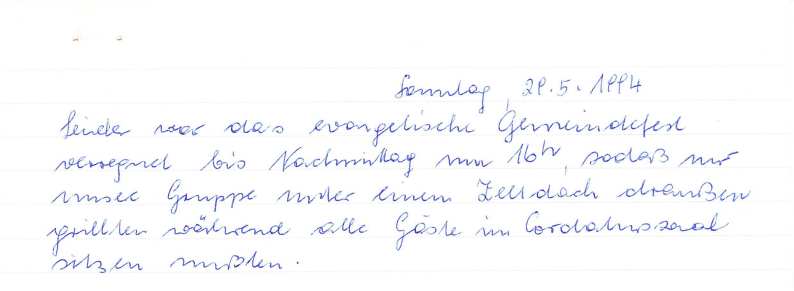 Sonntag, 29.5.1994
Leider war das evangelische Gemeindefest
verregnet bis Nachmittag um 16h, sodaß nur
unsee Gruppe unter einem Zeltdach draußen
grillten während alle Gäste im Cordatussaal
sitzen mußten.